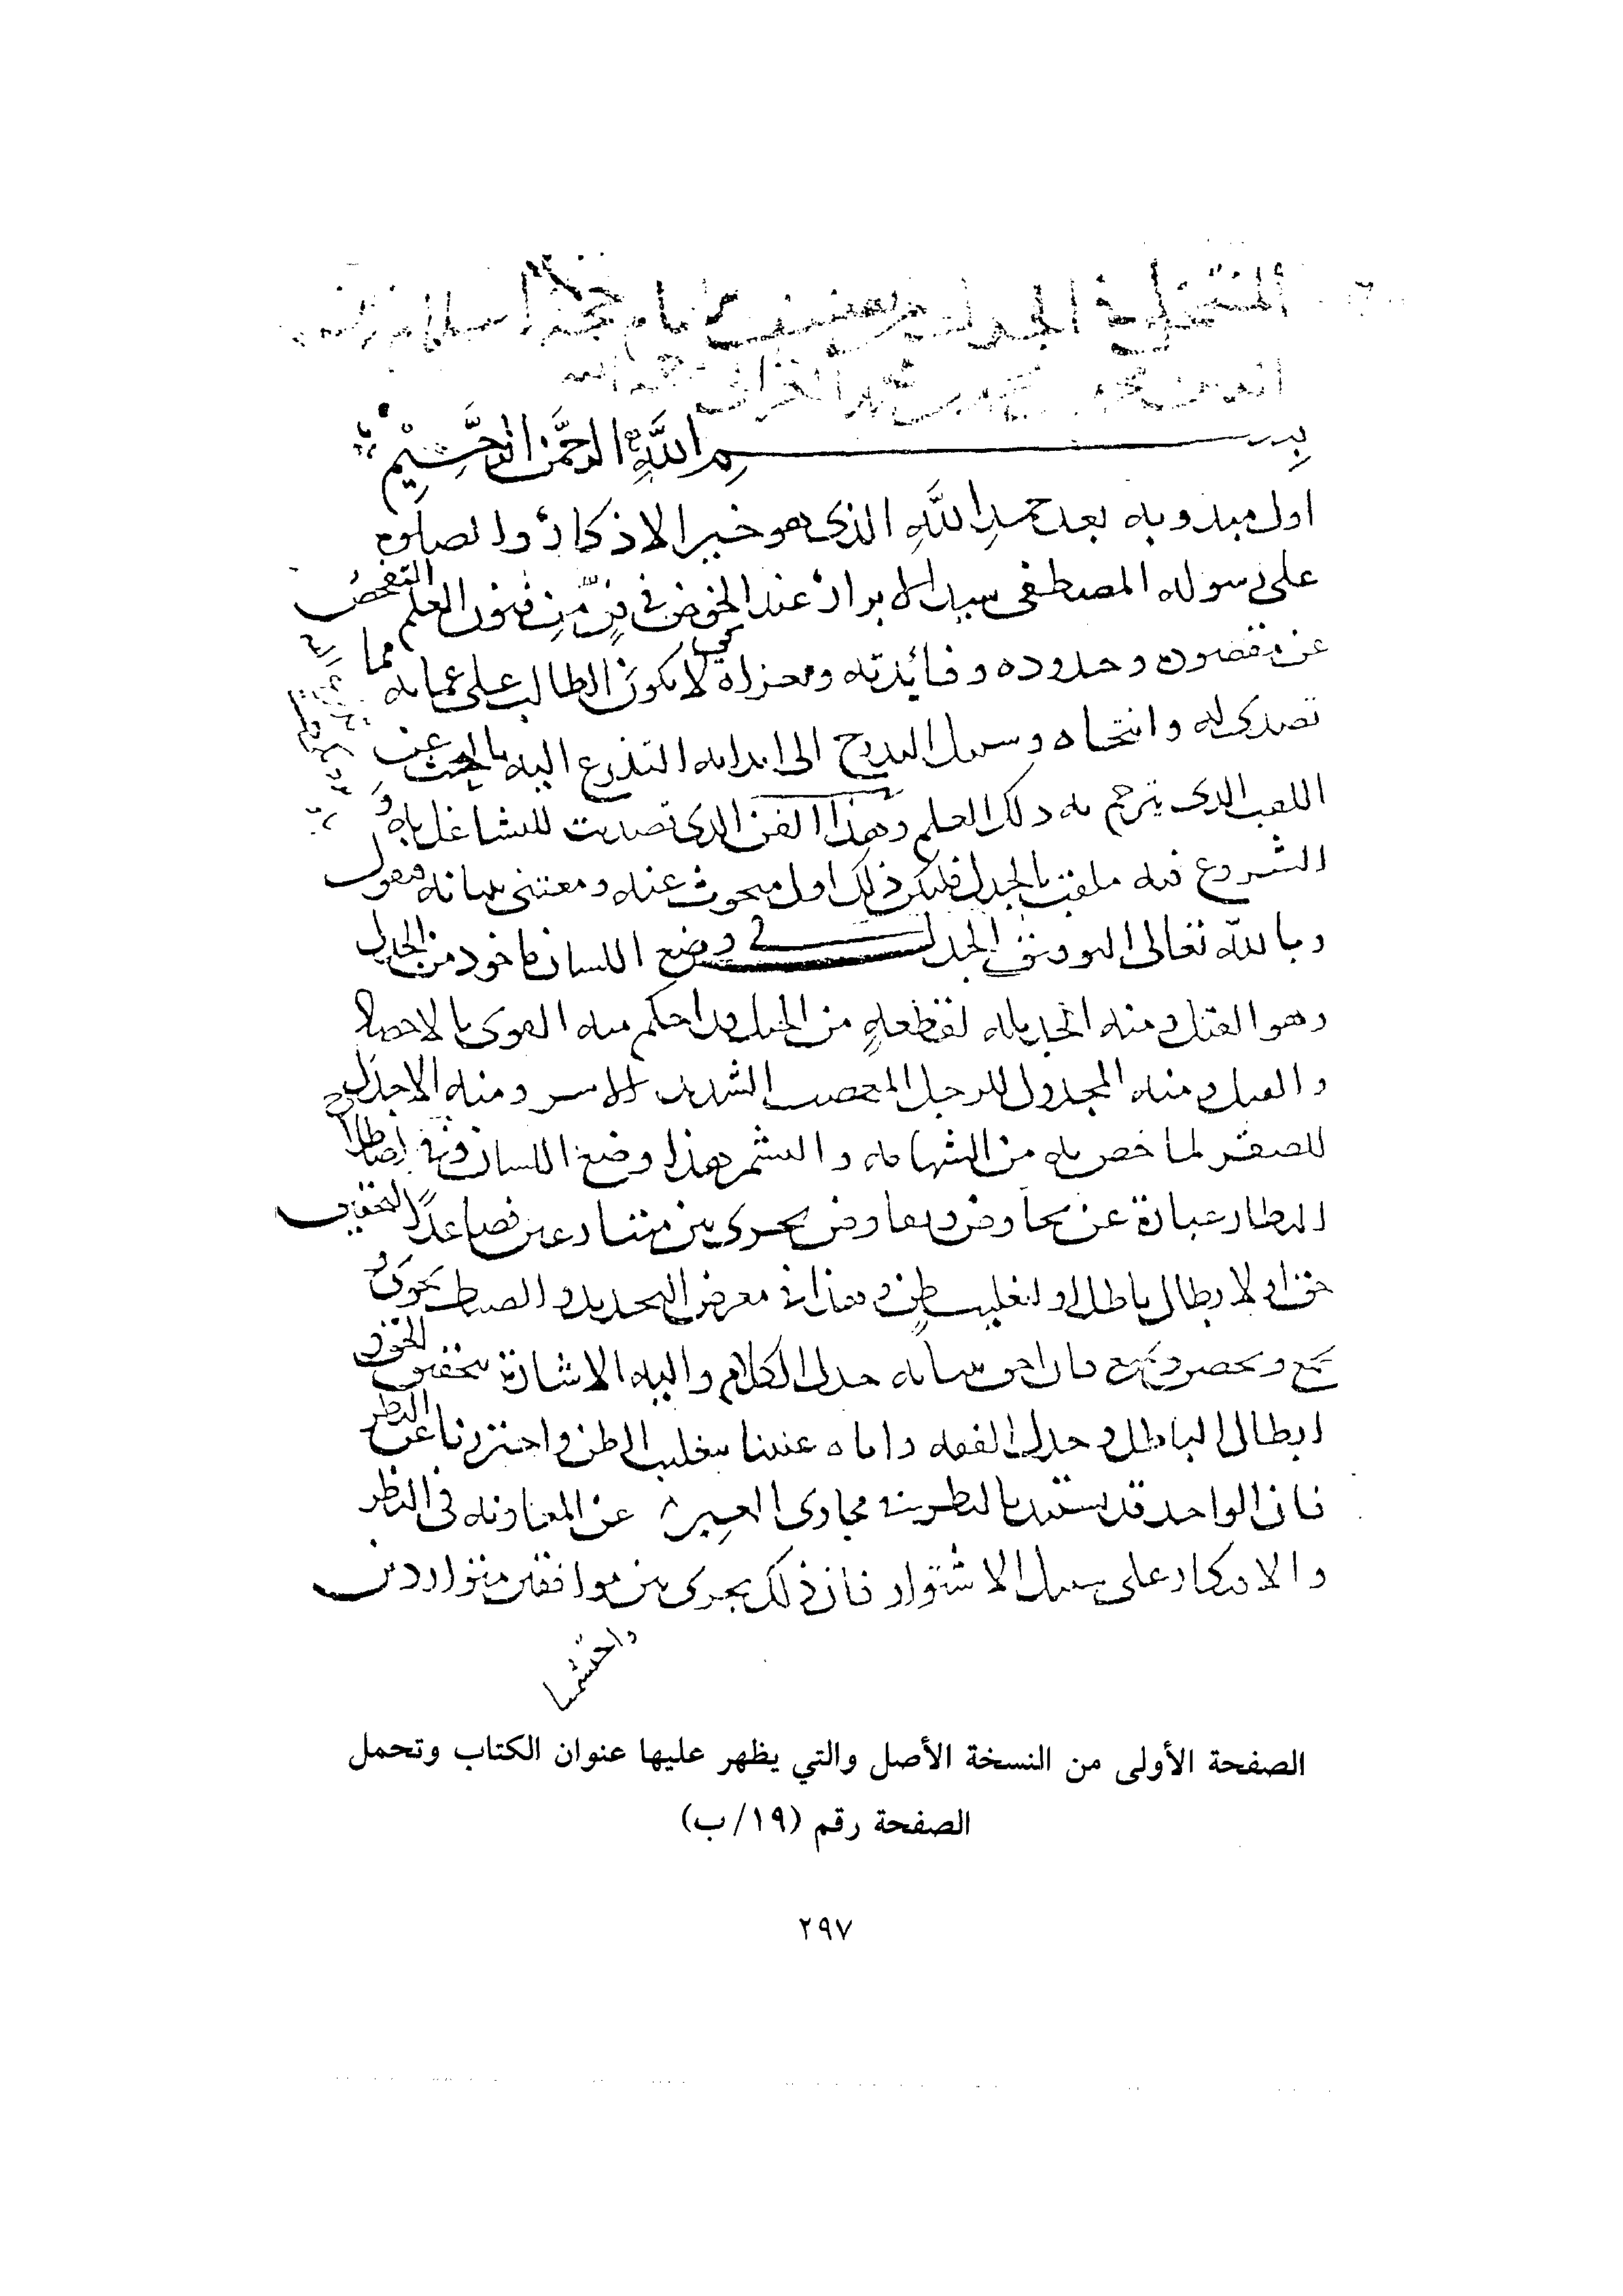 المنتخل في الجدل تصنيف الامام حجة الاسلام
محمد الغزالي رحمه الله
بسم الله الرحمن الرحيم
اول مبدو به بعد حمد الله الذي هو خير الاذكار والصلوه
على رسوله المصطفى سيد الابرار عند الخوض في فن من فنون العلم التفحص
عن مقصوده وحدوده وفائدته ومغزاه كي لا يكون الطالب على عمايه مما
تصدى له وانتحاه وسبيل التدرج الى ابدايه التذرع اليه بالبحث عن
اللقب الذي يترجم به ذلك العلم وهذا الفن الذي تصديت للتشاغل به و
الشروع فيه ملقب بالجدل فليكن ذلك اول مبحوث عنه ومعتنى ببيانه فنقول
وبالله تعالى التوفيق الجدل في وضع اللسان ماخوذ من الجدل
وهو الفتل ومنه الجديله لقطعه من الحبل قد احكم منه القوى بالاحصاد
والفتل ومنه المجدول للرجل المعصب الشديد الاسر ومنه الاجدل
للصقر لما خص به من الشهامه والتشمر هذا وضع اللسان وفي اصطلاح
النظار عبارة عن تحاوض وتفاوض يجري بين متنازعين فصاعدا لتحقيق
حق او لابطال باطل او لتغليب ظن وهذا في معرض التحديد والضبط يحوي و
يجمع ويحصر ويمنع فان احق ببيانه جدل الكلام واليه الاشارة بتحقيق الحق و
ابطال الباطل وجدل الفقه واياه عنينا بتغليب الظن واحترزنا عن النظر
فان الواحد قد يستبد بالنظر في مجاري العبر عن المعاونه في النظر
والافتكار على سبيل الاشتوار فان ذلك يجري بين موافقين متواردين
الصفحة الأولى من النسخة الأصل والتي يظهر عليها عنوان الكتاب وتحمل
الصفحة رقم (١٩/ب)
٢٩٧